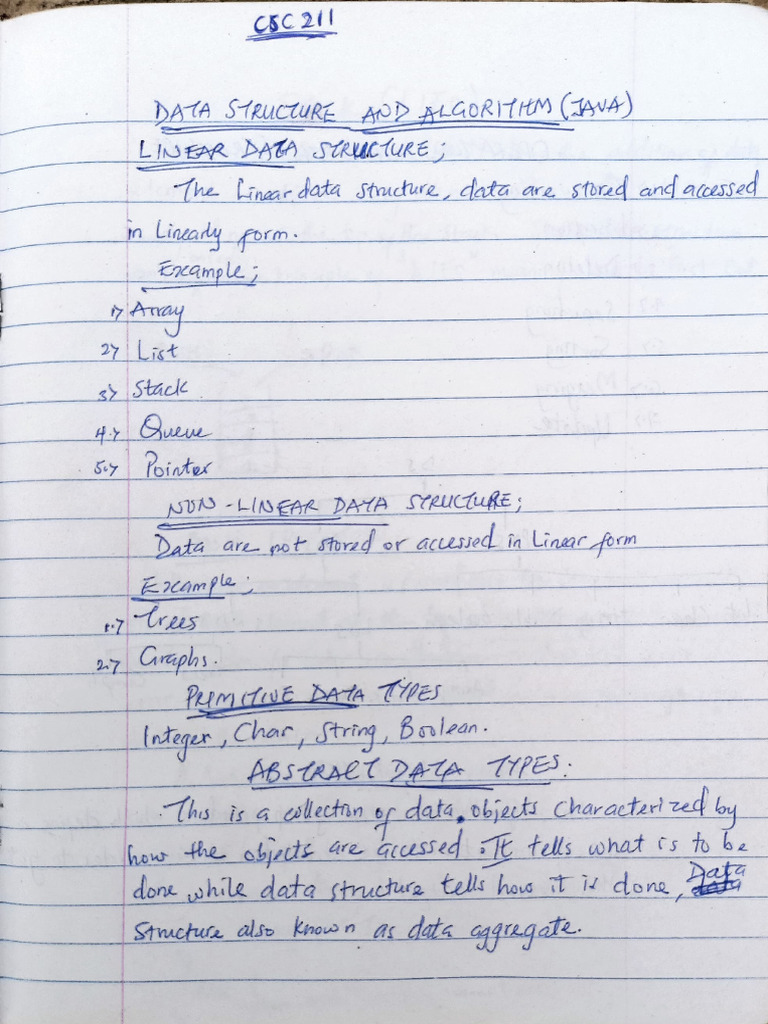 CSC 211
DATA STRUCTURE AND ALGORITHM (JAVA)
LINEAR DATA STRUCTURE;
The Linear data structure, data are stored and accessed
in Linearly form.
Example;
1> Array
2> List
3> Stack
4.> Queue
5.> Pointer
NON-LINEAR DATA STRUCTURE;
Data are not stored or accessed in Linear form
Example;
1.> Trees
2.> Graphs.
PRIMITIVE DATA TYPES
Integer, Char, String, Boolean.
ABSTRACT DATA TYPES:
This is a collection of data objects characterized by
how the objects are accessed. It tells what is to be
done, while data structure tells how it is done, Data
Structure also known as data aggregate.